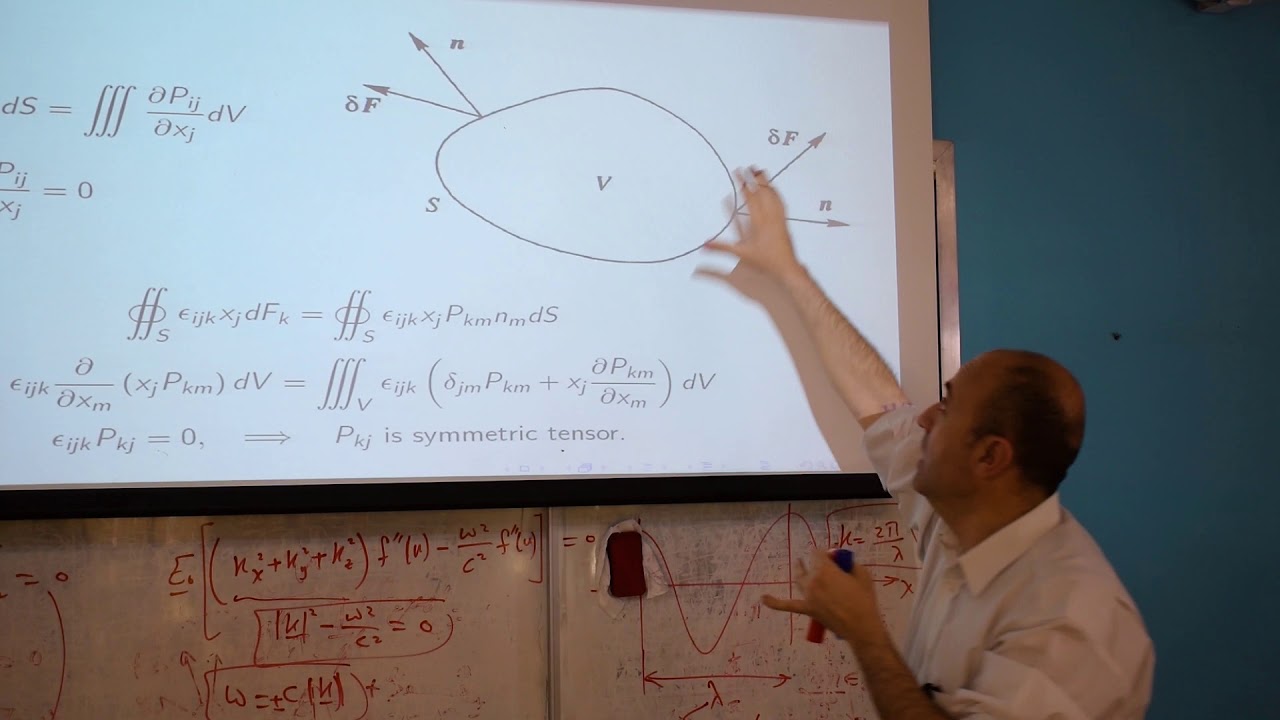 dS = ∭ ∂P_ij/∂x_j dV
P_ij/x_j = 0
n
δF
δF
n
V
S
∯_S ϵ_ijk x_j dF_k = ∯_S ϵ_ijk x_j P_km n_m dS
ϵ_ijk ∂/∂x_m (x_j P_km) dV = ∭_V ϵ_ijk (δ_jm P_km + x_j ∂P_km/∂x_m) dV
ϵ_ijk P_kj = 0, ⟹ P_kj is symmetric tensor.
= 0
E_0 [(k_x^2 + k_y^2 + k_z^2) f''(u) - ω^2/c^2 f''(u)] = 0
|k|^2 - ω^2/c^2 = 0
ω = ±c|k|
k = 2π/λ
x
λ